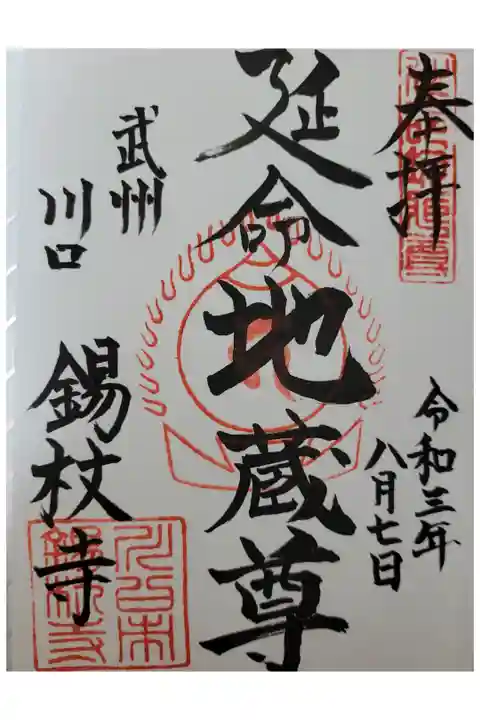 奉拝
令和三年
八月七日
延命地蔵尊
武州
川口
錫杖寺